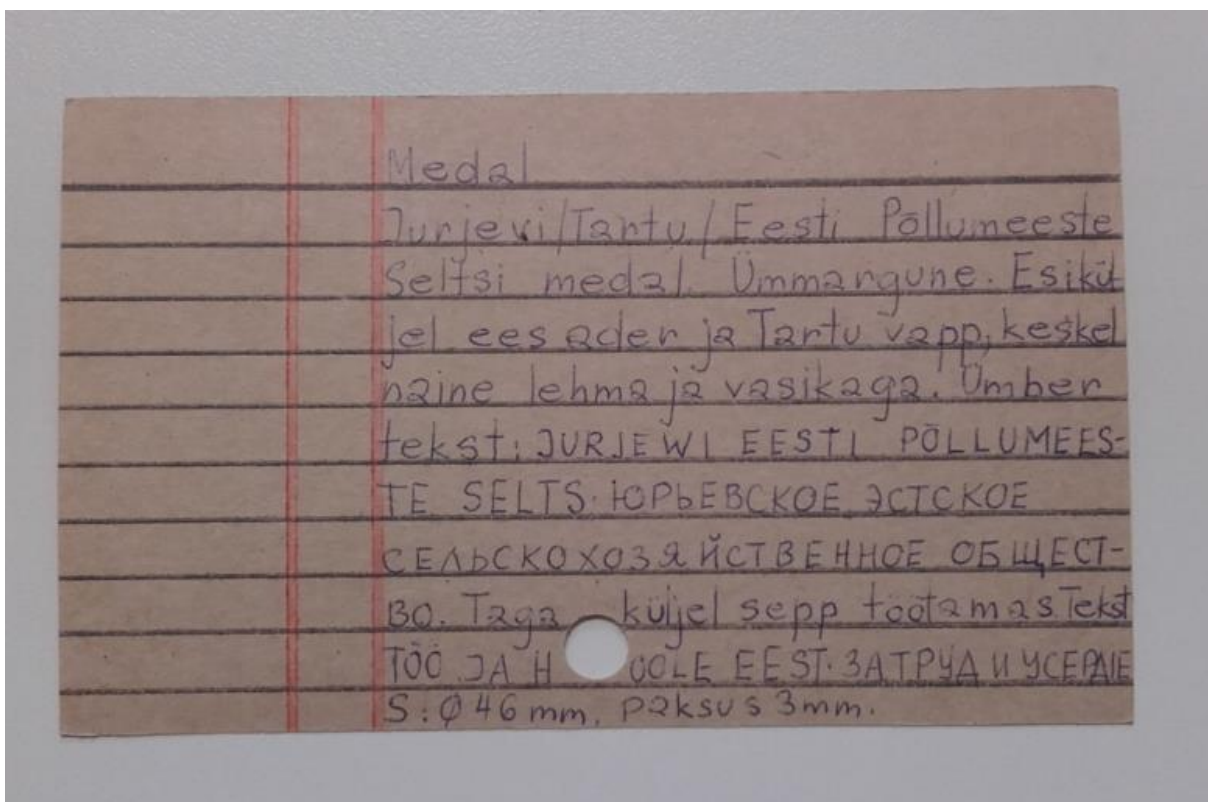 Medal
Jurjevi/Tartu/Eesti Põllumeeste
Seltsi medal. Ümmargune. Esikül
jel ees ader ja Tartu vapp, keskel
naine lehma ja vasikaga. Ümber
tekst: JURJEWI EESTI PÕLLUMEES-
TE SELTS. ЮРЬЕВСКОЕ ЭСТСКОЕ
СЕЛЬСКОХОЗЯЙСТВЕННОЕ ОБЩЕСТ-
ВО. Taga küljel sepp töötamas Tekst
TÖÖ JA H OOLE EEST. ЗА ТРУД И УСЕРДIЕ
S: Ø 46 mm, paksus 3mm.